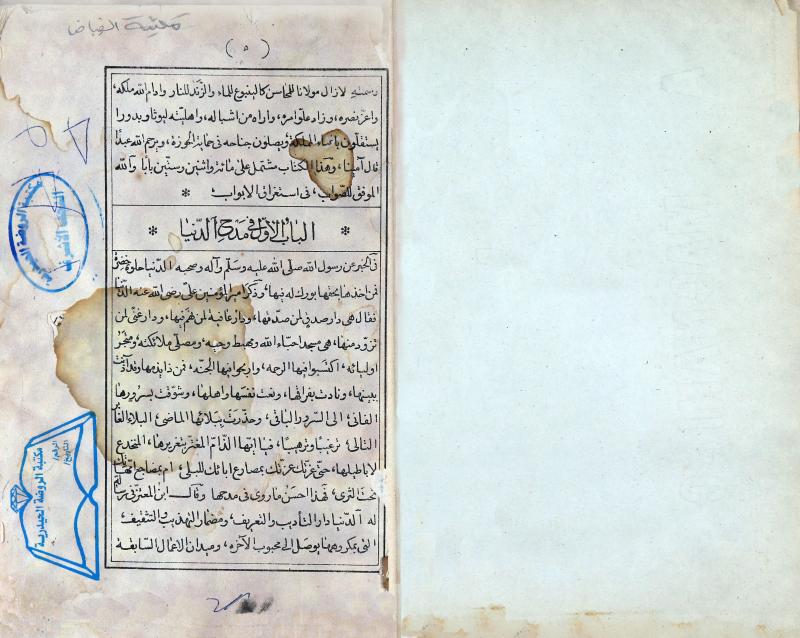 مكتبة الرياض
(٥)
لازال مولانا للمحاسن كالينبوع للماء والزند للنار وادام الله ملكه،
واعز نصره، وزاد علو امره، واراه من اشباله، واهليته ليوثا وبدورا
يستقلون باعباء المملكة ويصلون جناحه فى حماية الحوزة، ويرحم الله عبدًا
قال آمينا، وهذا الكتاب مشتمل على مائة واثنين وستين بابا والله
الموفق للصواب، فى استغراق الابواب؛ *
* الباب الاول فى مدح الدنيا *
فى الخبر عن رسول الله صلى الله عليه وسلم وآله وصحبه الدنيا حلوة خضرة
فمن اخذها بحقها بورك له فيها، وذكر امير المؤمنين على رضى الله عنه الدنيا
فقال هى دار صدق لمن صدقها، ودار عافية لمن فهم فيها، ودار غنى لمن
تزود منها، هى مسجد احباء الله ومهبط وحيه، ومصلى ملائكته، ومتجر
اوليائه، اكتسبوا فيها الرحمه، واربحوا فيها الجنه، فمن ذا يذمها وقد آذنت
ببينها، ونادت بفراقها، ونعت نفسها واهلها، وشوقت بسرورها
الفانى؛ الى السرور الباقى، وحذرت ببلائها الماضى؛ البلاء الغابر
التالى؛ ترغيبا وترهيبا، فيا ايها الذام المغتر بتغريرها، المنخدع
لاباطيلها، متى غرتك بمصارع ابائك للبلى؛ ام بمضاجع امهاتك
تحت الثرى، فهذا احسن ما روى فى مدحها وقال ابن المعتز فى رسالة
له الدنيا دار التأديب والتعريف، ومضمار التهذيب والتثقيف،
التى بمكروهها يوصل الى محبوب الآخره، وميدان الاعمال السابقة
مكتبة الروضة الحيدرية
النجف الأشرف
مكتبة الروضة الحيدرية
الرقم/
التاريخ/